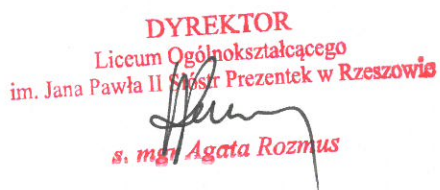 DYREKTOR
Liceum Ogólnokształcącego
im. Jana Pawła II Sióstr Prezentek w Rzeszowie
s. mgr Agata Rozmus